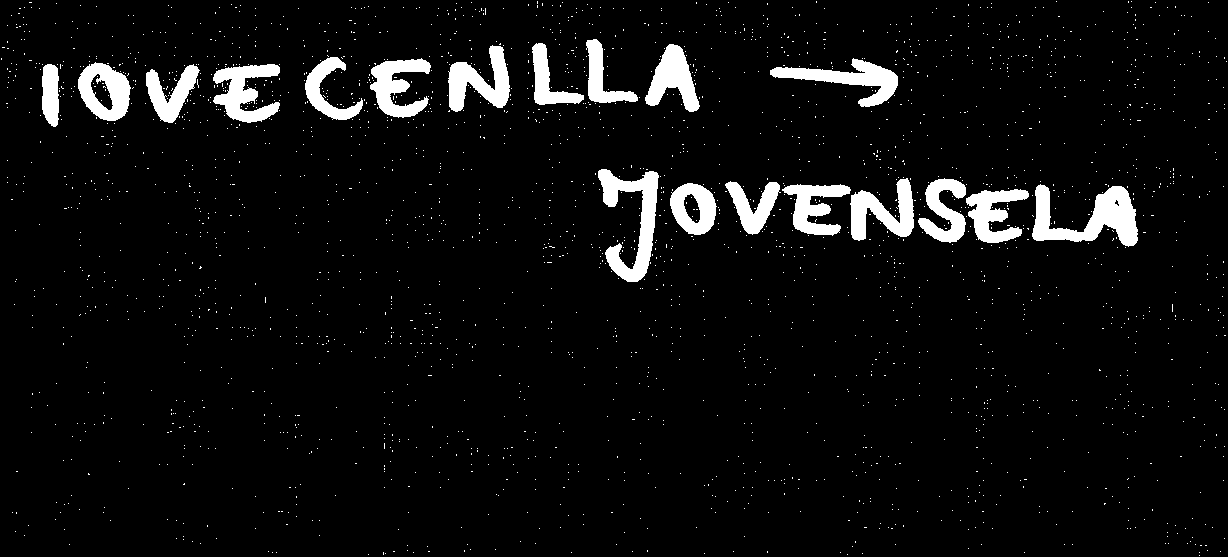 IOVECENLLA →
JOVENSELA